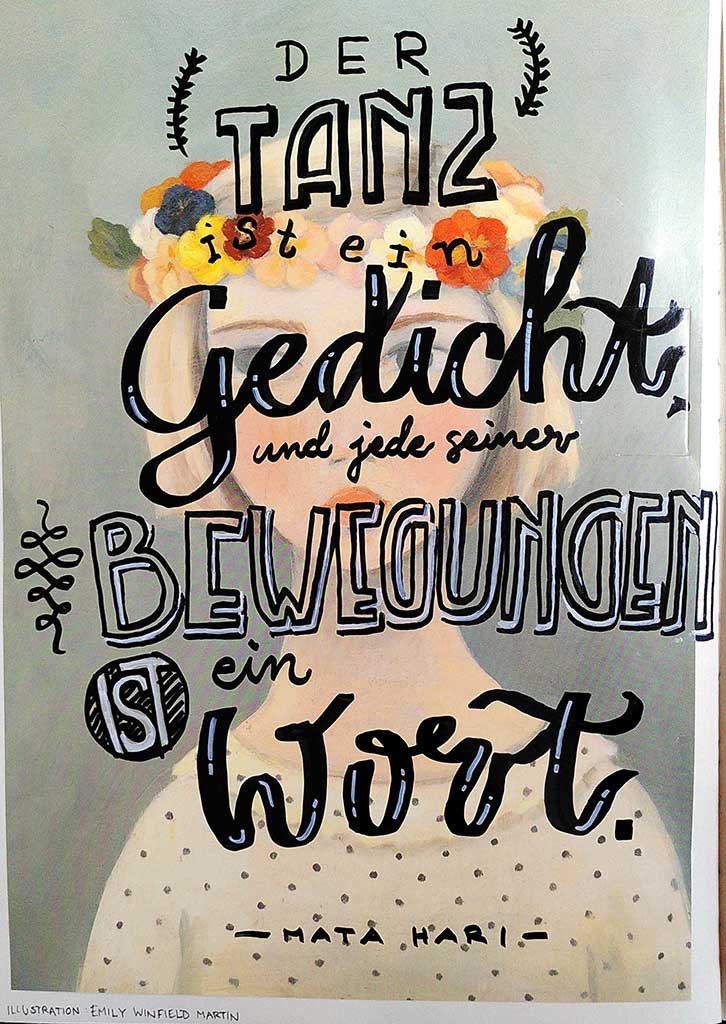 DER
TANZ
ist ein
Gedicht,
und jede seiner
BEWEGUNGEN
IST ein
Wort.
- MATA HARI -
ILLUSTRATION: EMILY WINFIELD MARTIN